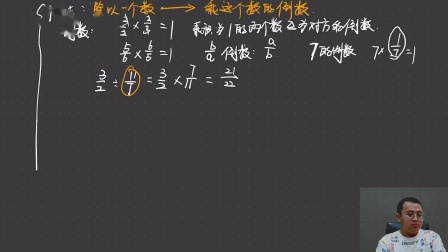 除以一个数 → 乘这个数的倒数
倒数: 2/3 × 3/2 = 1 乘积为1的两个数互为对方的倒数
5/6 × 6/5 = 1 b/a 倒数: a/b 7的倒数 7 × 1/7 = 1
3/2 ÷ 11/7 = 3/2 × 7/11 = 21/22